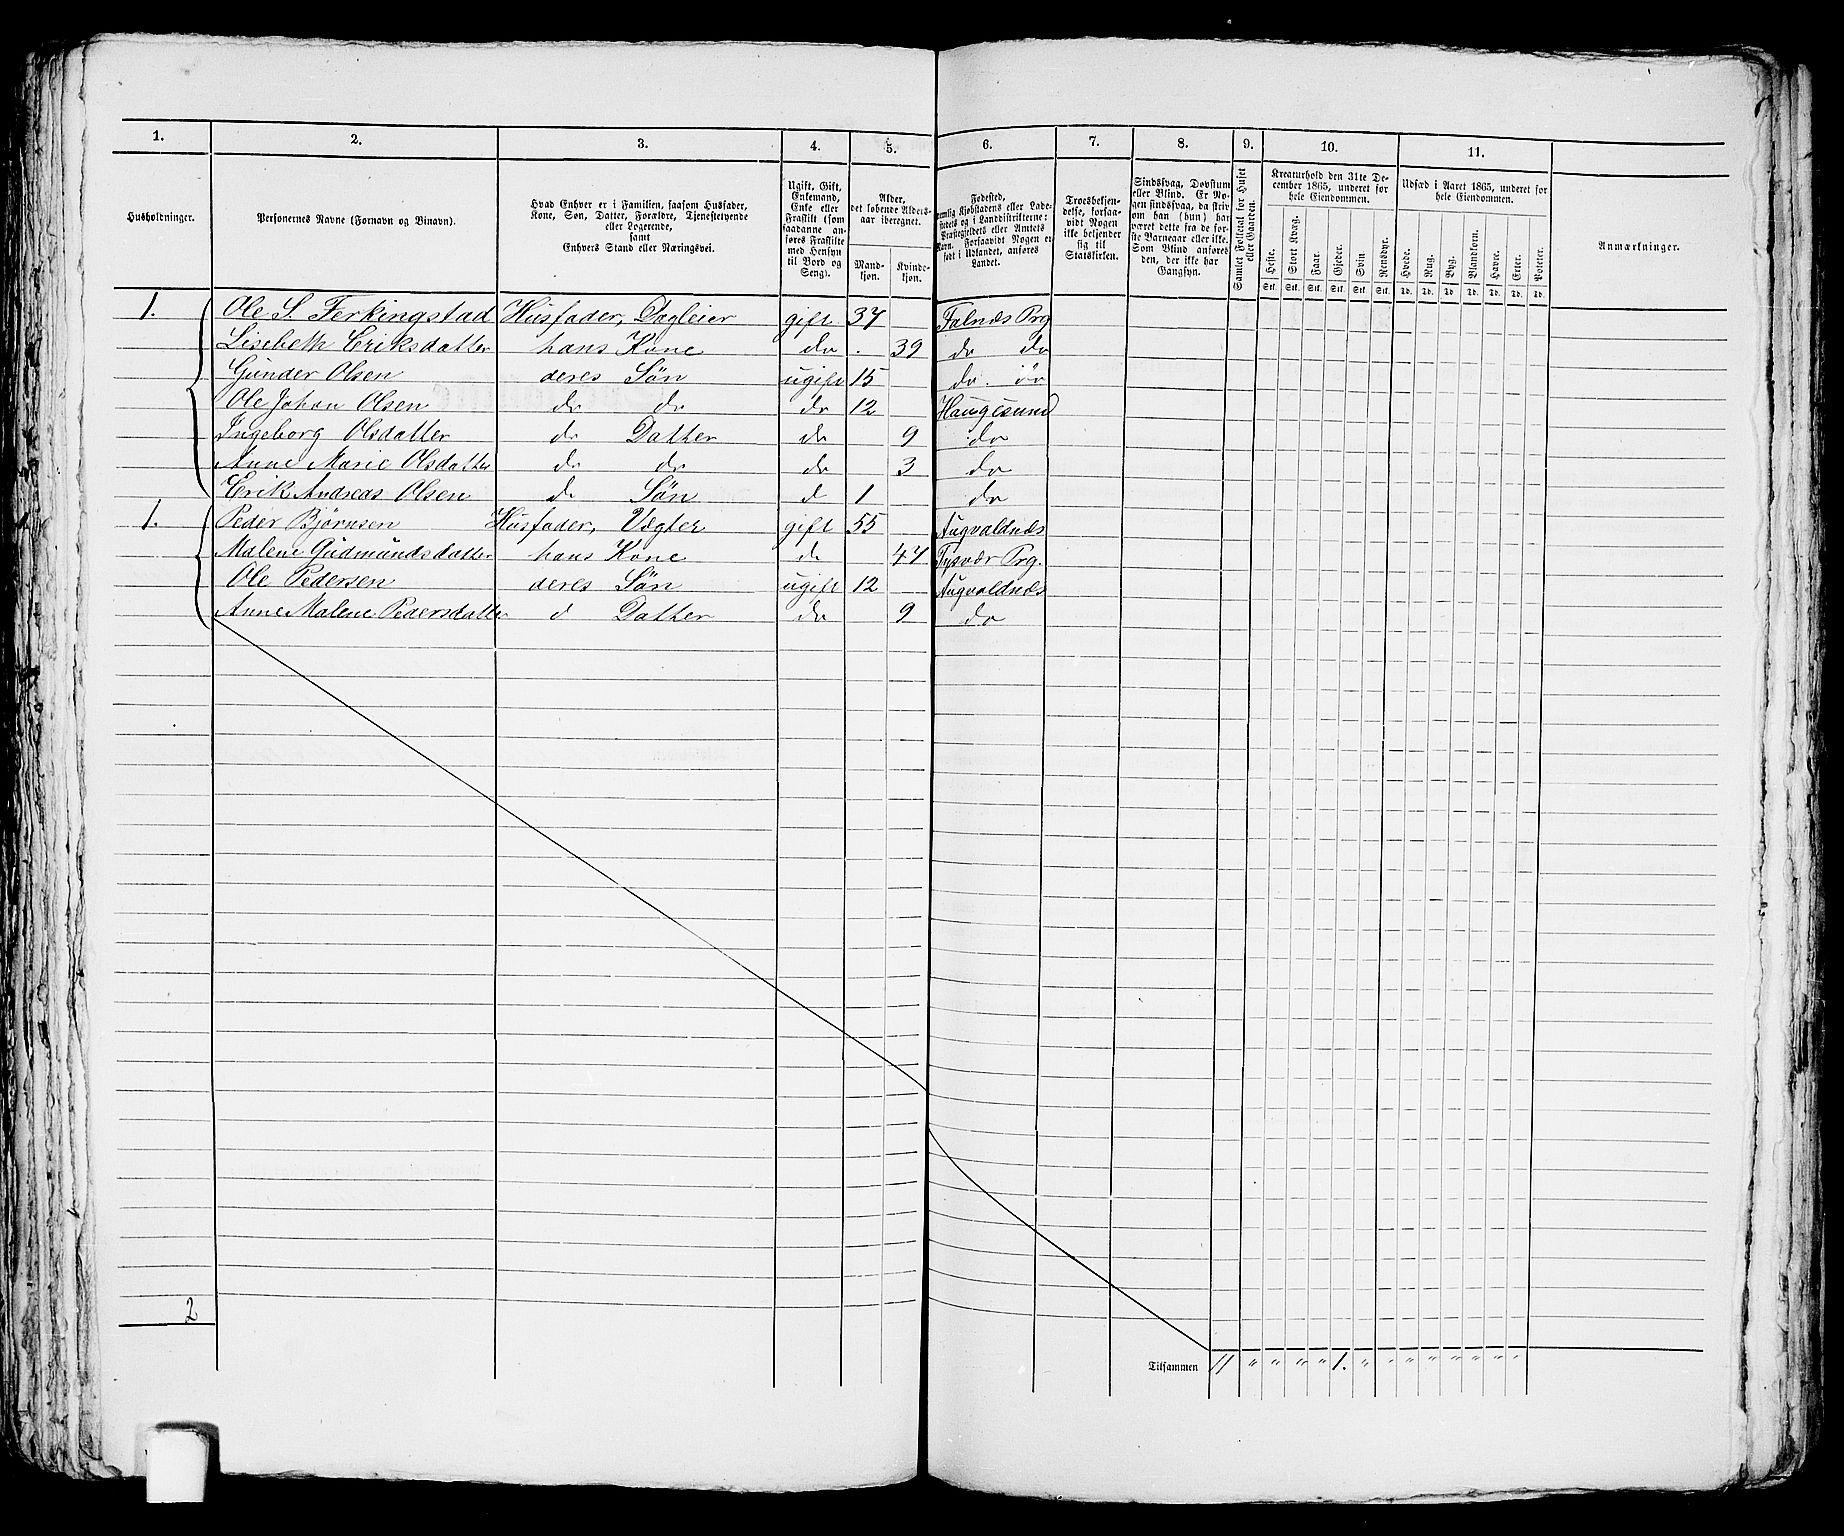 1. 2. 3. 4. 5. 6. 7. 8. 9. 10. 11.
Husholdninger.
Personernes Navne (Fornavn og Binavn).
Hvad Enhver er i Familien, saasom Husfader,
Kone, Søn, Datter, Forældre, Tjenestetyende
eller Logerende,
samt
Enhvers Stand eller Næringsvei.
Ugift, Gift,
Enkemand,
Enke eller
Fraskilt (som
saadanne an-
føres Fraskilte
med Hensyn
til Bord og
Seng).
Alder,
det løbende Alders-
aar iberegnet.
Mand-
kjøn.
Kvinde-
kjøn.
Fødested,
nemlig Kjøbstadens eller Lade-
stedets og i Landdistrikterne:
Præstegjeldets eller Amtets
Navn. Forsaavidt Nogen er
født i Udlandet, anføres
Landet.
Troesbekjen-
delse, forsaa-
vidt Nogen
ikke bekjender
sig til
Statskirken.
Sindssvag, Døvstum
eller Blind. Er No-
gen sindssvag, da skriv
om han (hun) har
været dette fra de før-
ste Barneaar eller ikke.
Som Blind anføres
den, der ikke har
Gangsyn.
Samlet Folketal for Huset
eller Gaarden.
Kreaturhold den 31te De-
cember 1865, underet for
hele Eiendommen.
Heste. Stort Kvæg. Faar. Gjeder. Svin. Rensdyr.
Stk. Stk. Stk. Stk. Stk. Stk.
Udsæd i Aaret 1865, underet for
hele Eiendommen.
Hvede. Rug. Byg. Blandkorn. Havre. Erter. Poteter.
Td. Td. Td. Td. Td. Td. Td.
Anmærkninger.
1. Ole S. Ferkingstad Husfader, Dagleier gift 37 Falnæs Prg
Lisebeth Eriksdatter hans Kone do . 39 do do
Gunder Olsen deres Søn ugift 15 do. do
Ole Johan Olsen do do do 12 Haugesund
Ingeborg Olsdatter do Datter do 9 do
Anne Marie Olsdatter do do do 3 do
Erik Andreas Olsen do Søn d 1 do
1. Peder Bjørnsen Husfader, Vægter gift 55 Augvaldnæs
Malene Gudmundsdatter hans Kone do 47 Tysvær Prg.
Ole Pedersen deres Søn ugift 12 Augvaldnæs
Anne Malene Pedersdatter d Datter do 9 do
2
Tilsammen 11 " " " " 1. " " " " " " " "